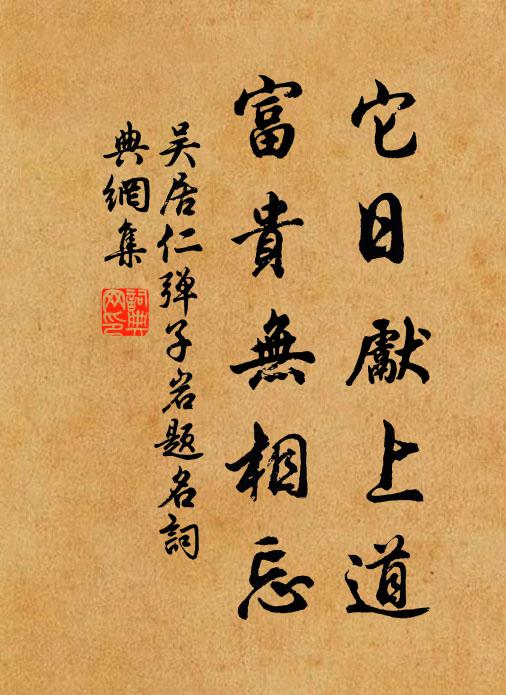 它日獻上道
富貴無相忘
吴居仁弹子岩题名詞
典網集
詞典网印